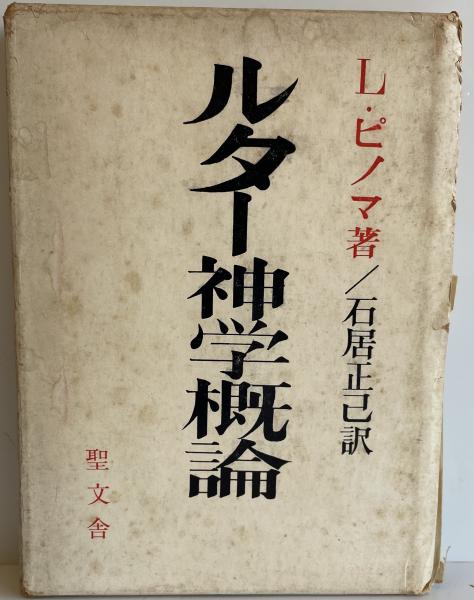 L・ピノマ著／石居正己訳
ルター神学概論
聖文舎